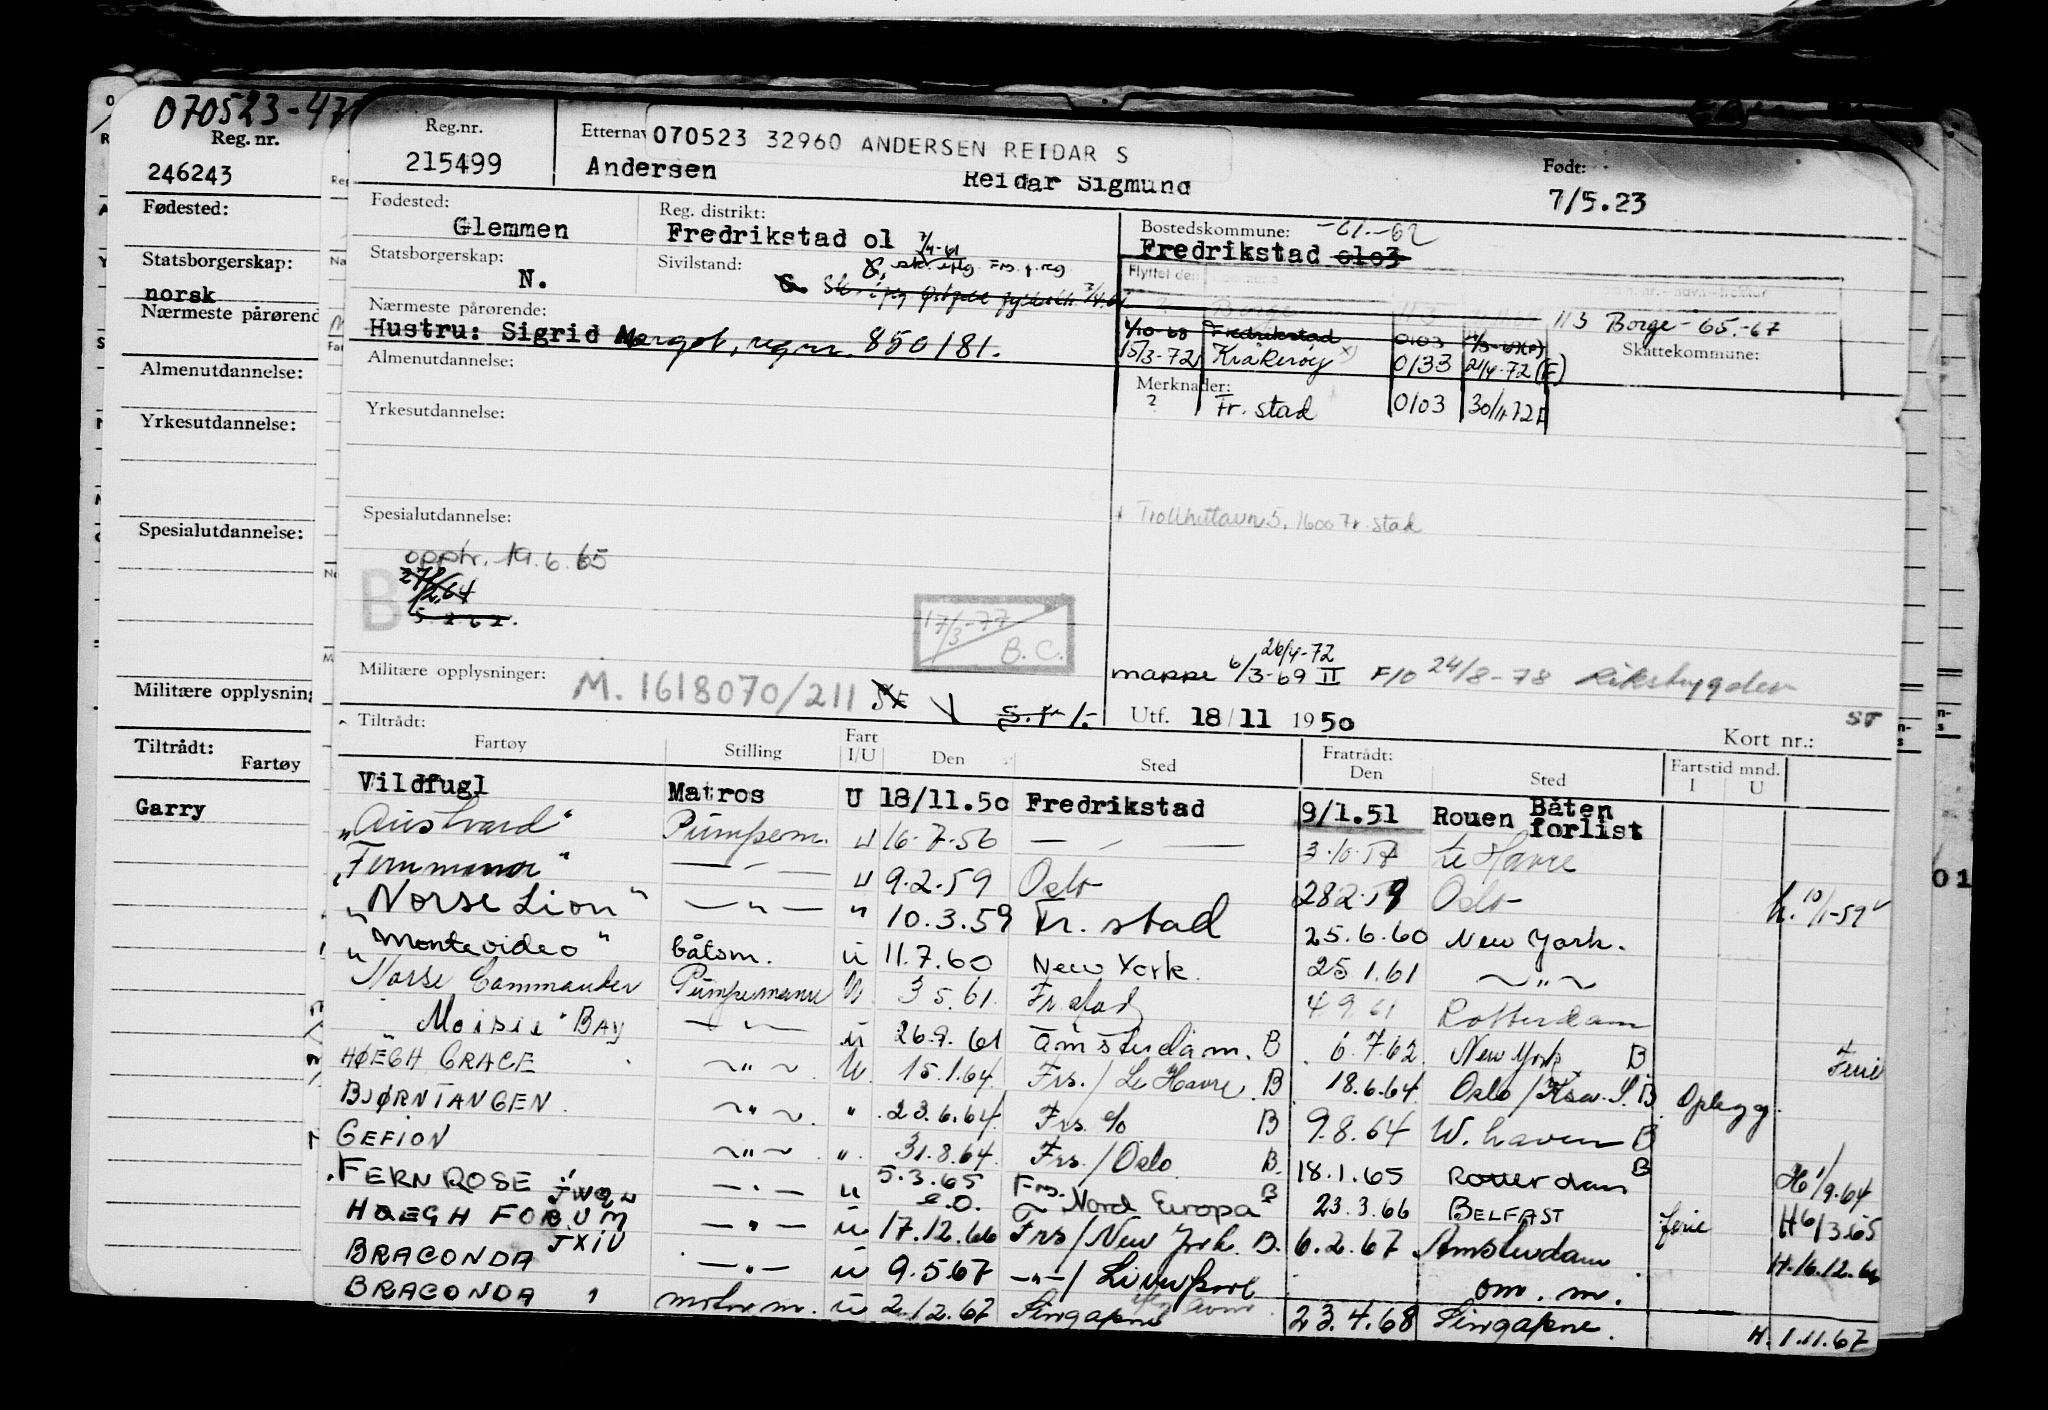 070523-47
Reg. nr.
246243
Fødested:
Statsborgerskap:
norsk
Nærmeste pårørend
Almenutdannelse:
Yrkesutdannelse:
Spesialutdannelse:
Militære opplysning
Tiltrådt:
Fartøy
Garry
Reg.nr.
215499
Etternav
070523 32960 ANDERSEN REIDAR S
Andersen Reidar Sigmund
Født:
7/5.23
Fødested:
Glemmen
Reg. distrikt:
Fredrikstad 01
7/4-61
Bostedskommune: -61.-62
Fredrikstad 0103
Statsborgerskap:
N.
Sivilstand:
Flyttet den
Borge 113
113 Borge - 65.-67
Nærmeste pårørende:
Hustru: Sigrid Margot, reg nr. 850181.
1/10-68 Fredrikstad 0103
15/3-72 Kråkerøy x) 0133 21/4-72 (F)
Skattekommune:
Almenutdannelse:
Merknader:
? Fr. stad 0103 30/11-72 F
Yrkesutdannelse:
Spesialutdannelse:
+ Trollhettavn 5, 1600 Fr. stad
opptr. 19.6.65
27/2.64
5.2.62.
B
17/3-77
B.C.
Militære opplysninger:
M. 1618070/211
mappe 6/3-69 II 26/4-72 F/O 24/8-78 Riksbygden
Utf. 18/11 1950
ST
Kort nr.:
Tiltrådt:
Fartøy Stilling Fart I/U Den Sted Fratrådt: Den Sted Fartstid mnd. I U
Vildfugl Matros U 18/11.50 Fredrikstad 9/1.51 Rouen Båten forlist
"Austvard" Pumpem. u 16.7.56 — " — 3.10.57 Le Havre
"Fernmanor" — " — u 9.2.59 Oslo 28.2.59 Oslo
"Norse Lion" — " — " 10.3.59 Fr. stad 25.6.60 New York. h. 10/1-59
"Montevideo" båtsm. u 11.7.60 New York. 25.1.61 ~ " ~
Norse Commander Pumpemann U. 3.5.61. Fr. stad 4.9.61 Rotterdam
"Moisie" BAY — " — u 26.9.61 Amsterdam. B 6.7.62 New York B Ferie
HØEGH GRACE ~ " ~ U. 15.1.64 Frs. / Le Havre. B 18.6.64 Oslo / B Oplegg.
BJØRNTANGEN. ~ " ~ " 23.6.64. Frs. B 9.8.64 W. haven B
GEFION ~ " ~ " 31.8.64. Frs. / Oslo B. 18.1.65 Rotterdam B H 1/9.64
FERNROSE — " — u 5.3.65 e.o. Frs. Nord Europa B 23.3.66 BELFAST ferie H 6/3.65
HØEGH FORUM — " — u 17.12.66 Frs / New York. B. 6.2.67 Amsterdam H. 16.12.66
JXIU
BRACONDA — " — u 9.5.67 — " — / Liverpool om. m.
BRACONDA motorm. u 2.12.67 Singapore 23.4.68 Singapore. H. 1.11.67
01